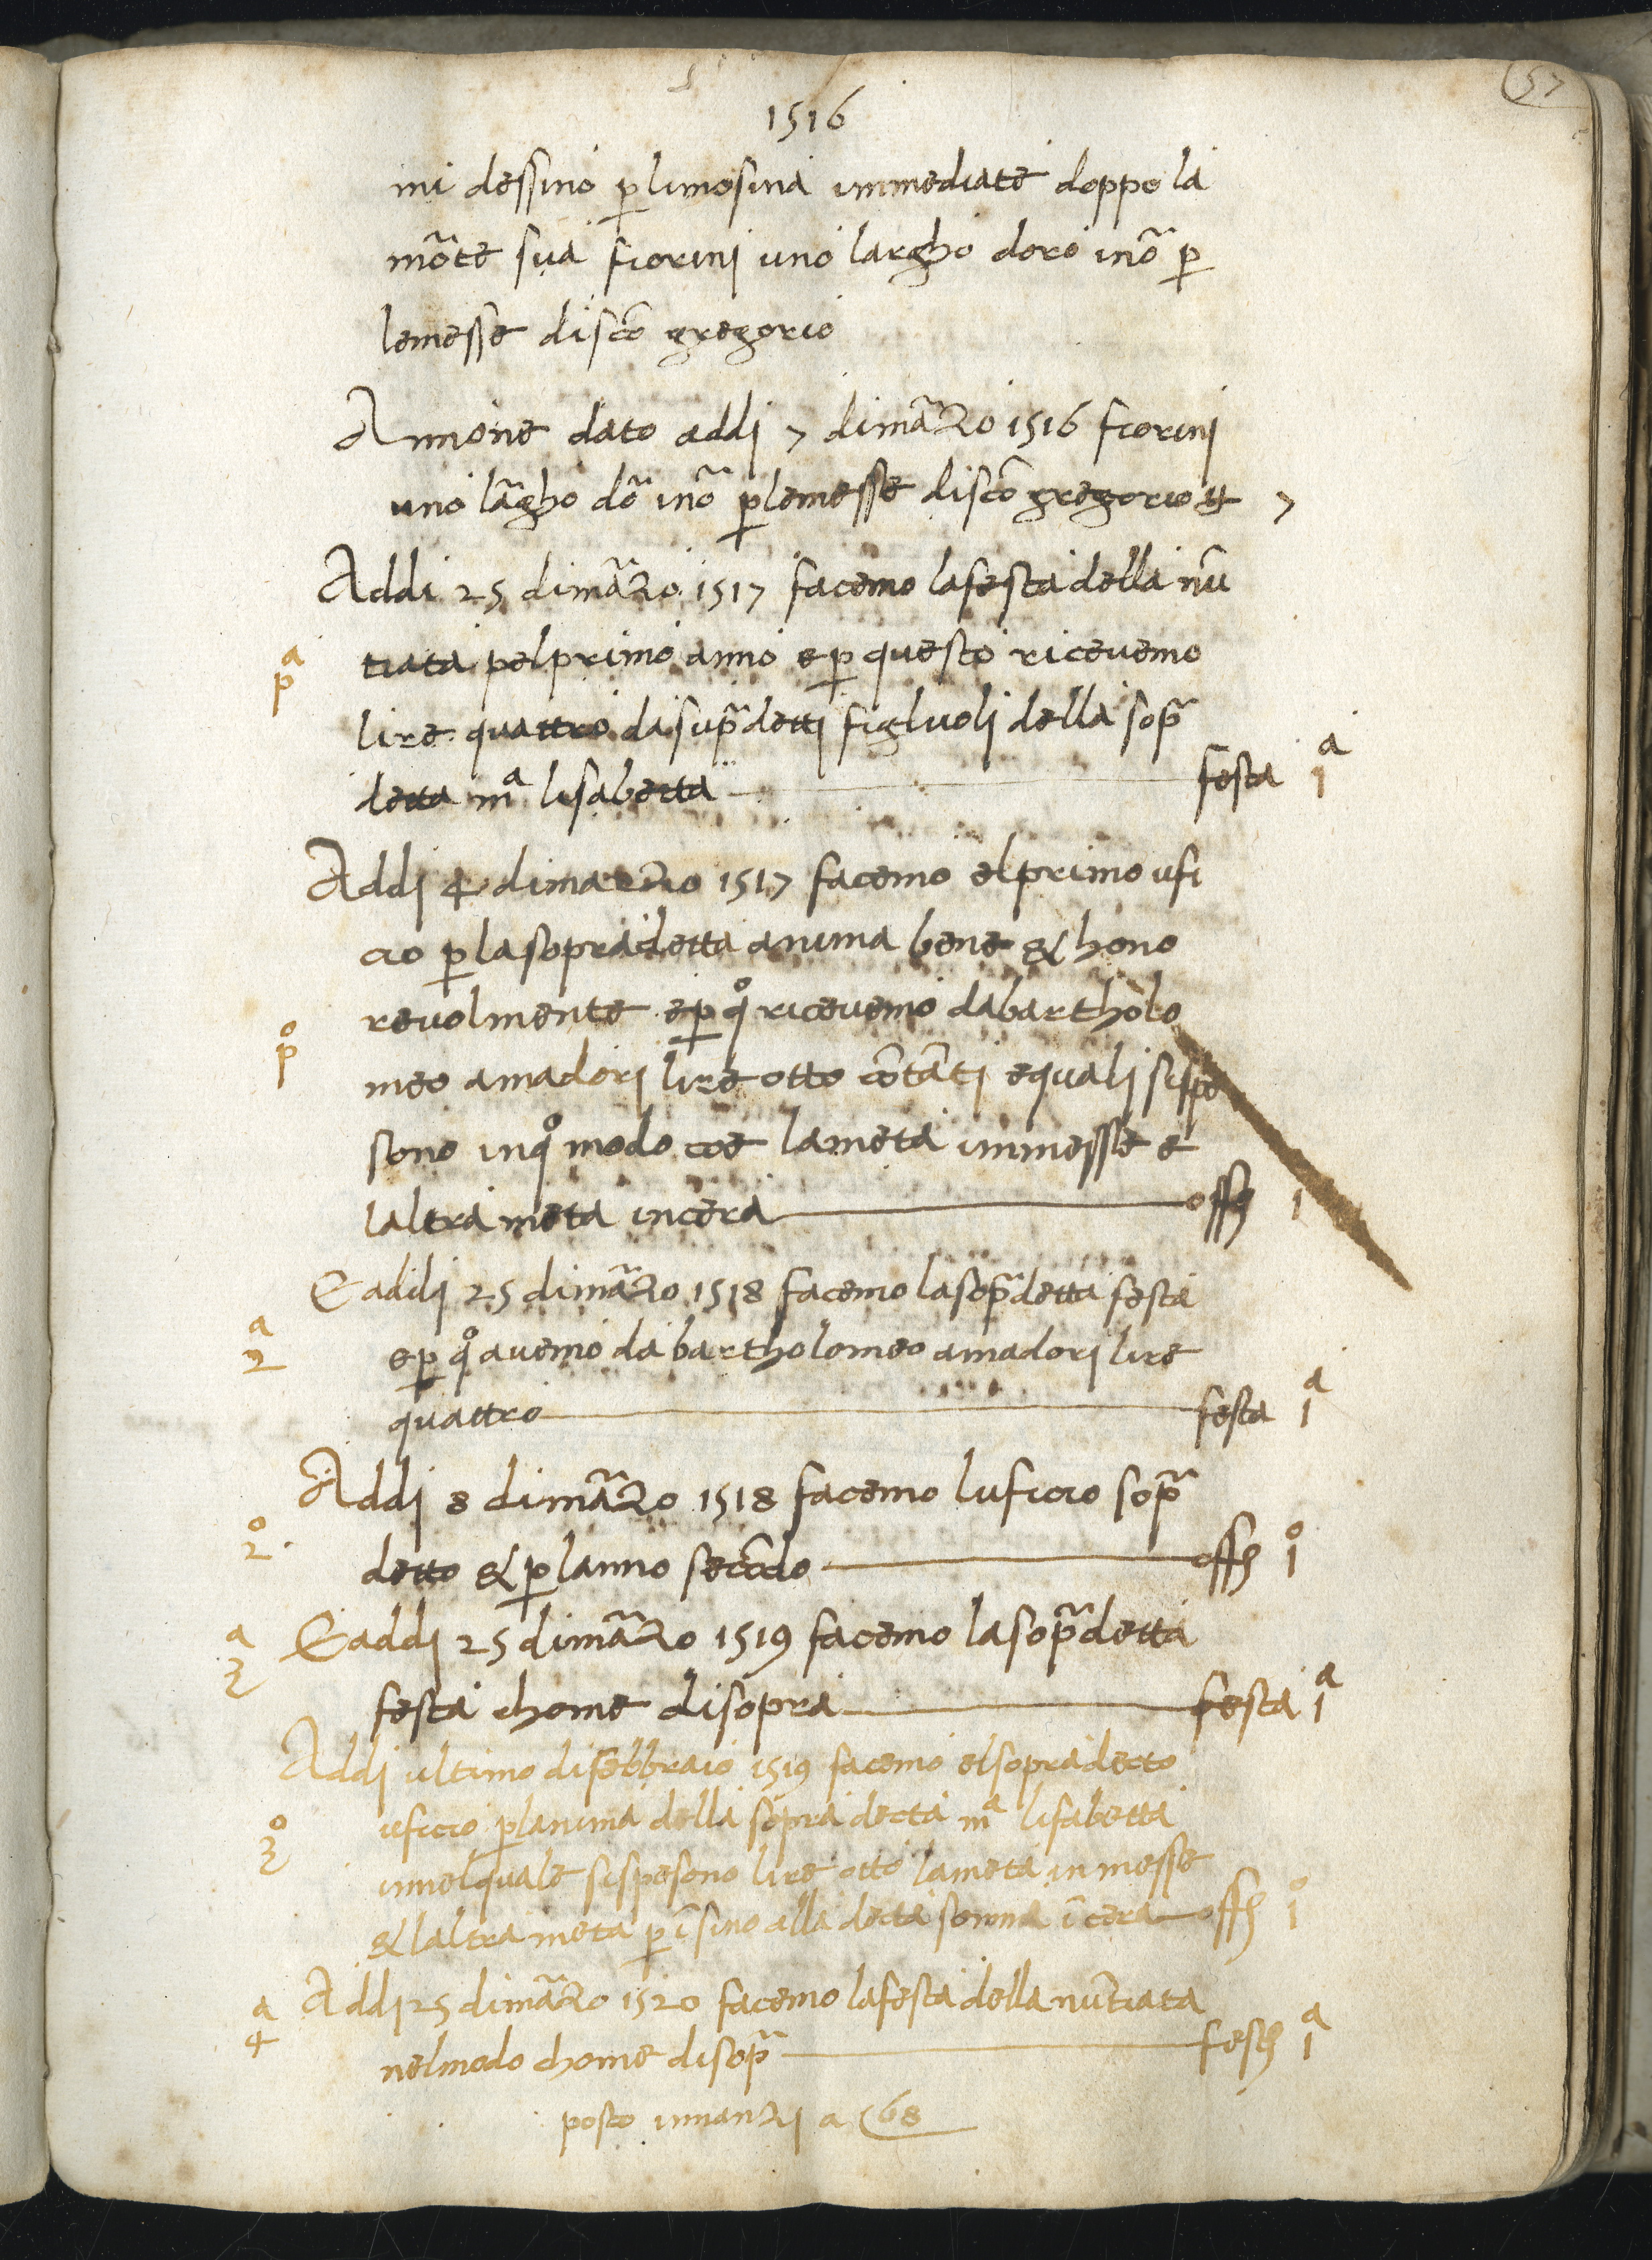 57
1516
mi dessino p̱ limosina immediate doppo la
mo͂te sua fiorini uno largho doro ino͂ p̱
lemesse disc͂o gregorio
Annone dato addi 7 dima͂zo 1516 fiorini
uno la͂gho do͂ ino͂ p̱ lemesse disc͂o gregorio ₶ 7
Addi 25 dima͂zo 1517 facemo lafesta della nu͂
pᵃ tiata pelprimo anno e p̱ questo ricevemo
lire quattro da sup͂adetti figluoli della sop͂a
detta mᵃ lisabetta festa 1ᵃ
Addi 4 dimarzo 1517 facemo elprimo ufi
cio p̱ lasopradetta anima bene & hono
revolmente e p̱ qº ricevemo dabartholo
pº meo amadori lire otto co͂ta͂ti equali sispe
sono inqº modo coe lameta inmesse e
laltra meta incera offo 1
E addi 25 dima͂zo 1518 facemo lasop͂adetta festa
2ᵃ e p̱ qº avemo da bartholomeo amadori lire
quattro festa 1ᵃ
Addi 8 dima͂zo 1518 facemo luficio sop͂a
2º detto & p̱ lanno seco͂do offo 1º
3ᵃ E addi 25 dima͂zo 1519 facemo lasop͂adetta
festa chome disopra festa 1ᵃ
Addi ultimo difebbraio 1519 facemo elsopradecto
3º uficio p̱ lanima della sopra decta mᵃ lisabetta
innelquale sispesono lire otto lameta in messe
& laltra meta p̱ i͂sino alla decta somma i͂ cera offo 1º
4ᵃ Addi 25 dima͂zo 1520 facemo lafesta della nu͂tiata
nelmodo chome disop͂a festa 1ᵃ
posto innanzi a 68